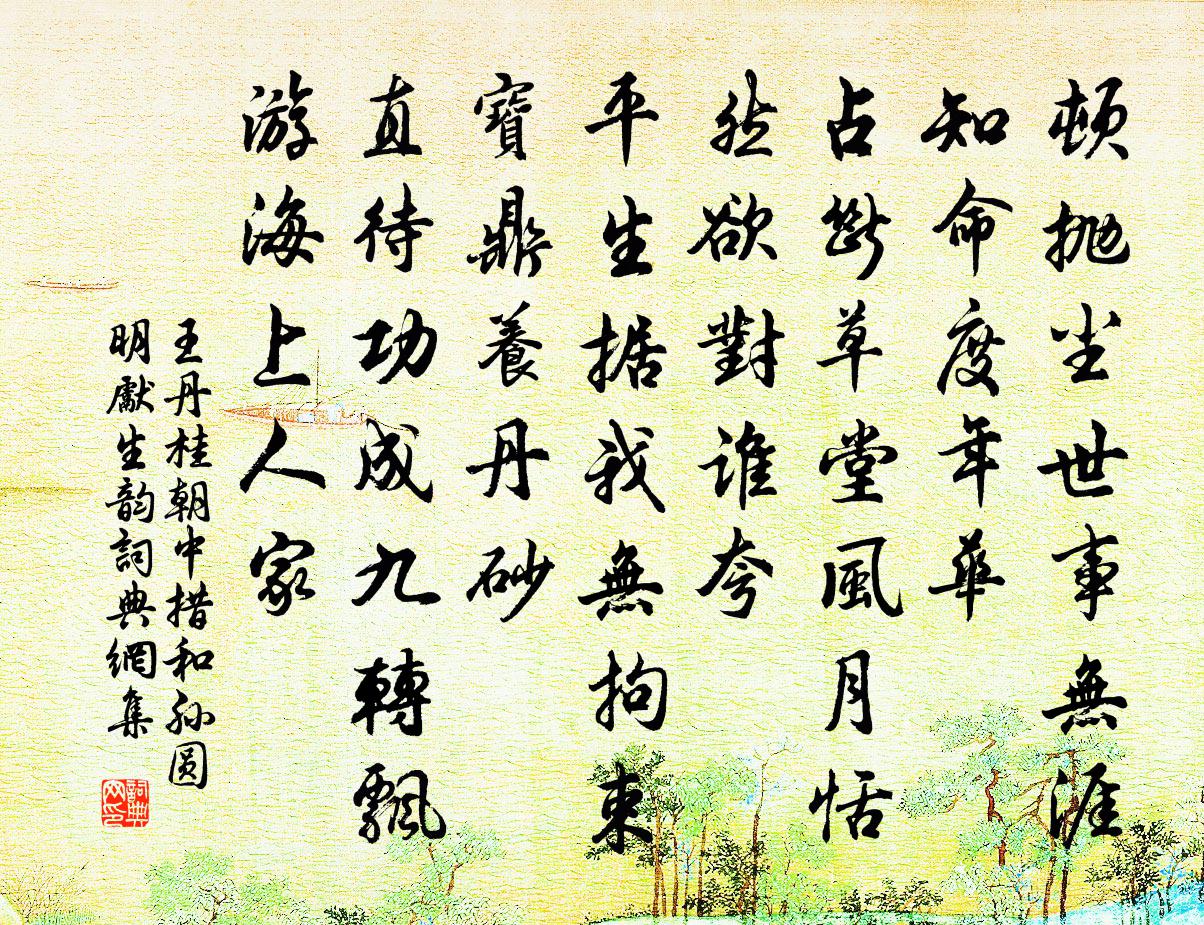 頓抛尘世事無涯
知命度年華
占斷草堂風月恬
然欲對誰夸
平生据我無拘束
寶鼎養丹砂
直待功成九轉飄
游海上人家
王丹桂朝中措和孙圆
明獻生韵詞典網集
詞典
网印